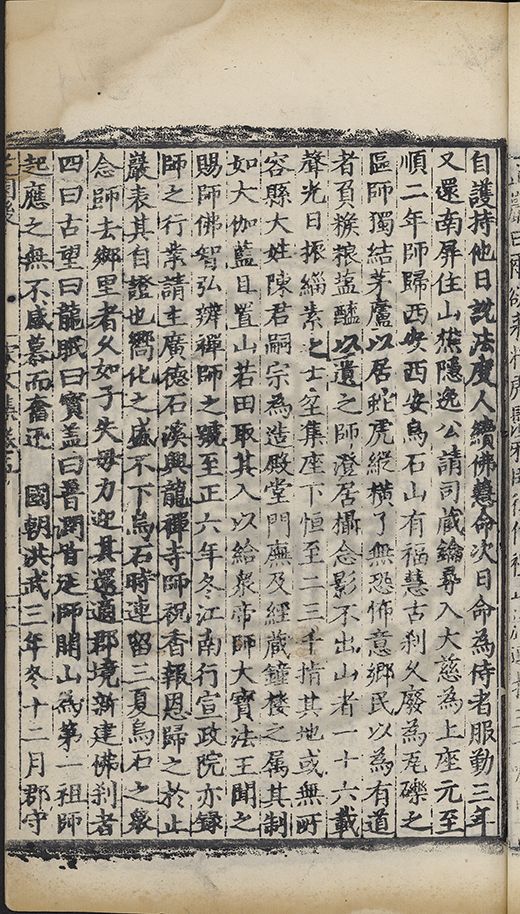 自護持他日說法度人續佛慧命次日命為侍者服勤三年
又還南屏住山蕉隱逸公請司藏鑰尋入大慈為上座元至
順二年師歸西安西安烏石山有福慧古刹乆廢為瓦礫之
區師獨結茅廬以居蛇虎縱横了無恐怖意鄉民以為有道
者負糇粮葅醢以遺之師澄居攝念影不出山者一十六載
聲光日振緇素之士坌集座下恒至二三千指其地或無所
容縣大姓陳君嗣宗為造殿堂門廡及經藏鐘樓之属其制
如大伽藍且置山若田取其入以給衆帝師大寶法王聞之
賜師佛智弘辨禪師之號至正六年冬江南行宣政院亦錄
師之行業請主廣德石溪興龍禪寺師祝香報恩歸之於止
巖表其自證也嚮化之盛不下烏石時連留三夏烏石之衆
念師去鄉里者乆如子失母力迎其還適郡境新建佛刹者
四曰古望曰龍眠曰寶盖曰普潤皆延師開山為第一祖師
起應之無不感慕而奮迅　國朝洪武三年冬十二月郡守